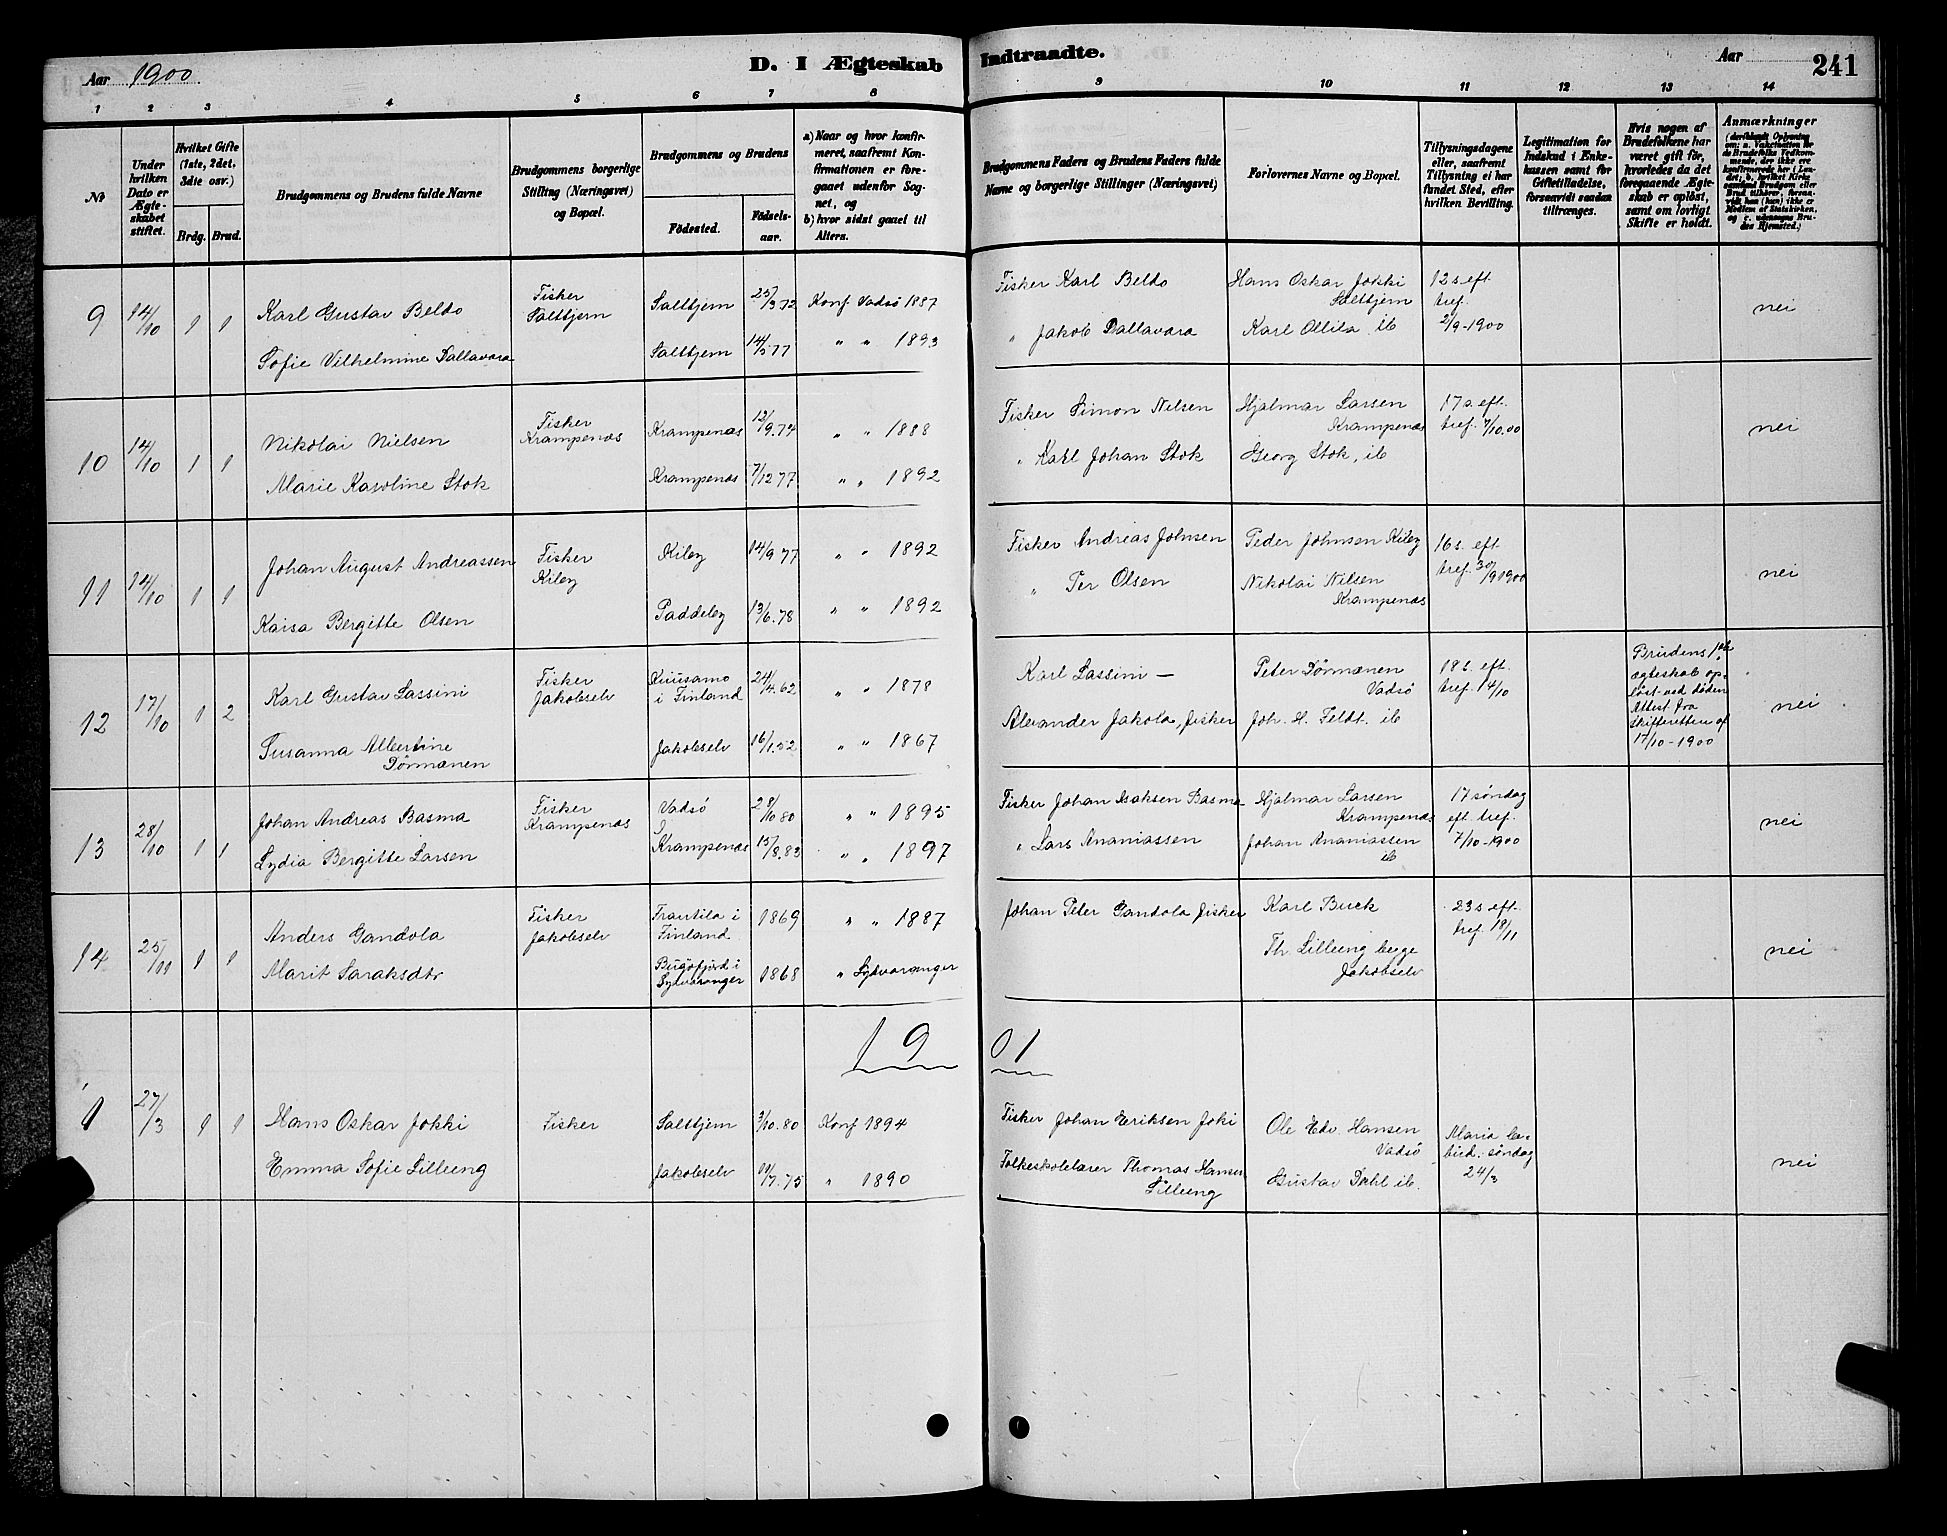 Aar 1900
D. I Ægteskab Indtraadte.
Aar
241
1 2 3 4 5 6 7 8 9 10 11 12 13 14
No
Under hvilken Dato er Ægteskabet stiftet.
Hvilket Gifte (1ste, 2det, 3die osv.)
Brdg. Brud.
Brudgommens og Brudens fulde Navne
Brudgommens borgerlige Stilling (Næringsvei) og Bopæl.
Brudgommens og Brudens
Födested. Födselsaar.
a) Naar og hvor konfirmeret, saafremt Konfirmationen er foregaaet udenfor Sognet, og
b) hvor sidst gaaet til Alters.
Brudgommens Faders og Brudens Faders fulde Navne og borgerlige Stillinger (Næringsvei)
Forlovernes Navne og Bopæl.
Tillysningsdagene eller, saafremt Tillysning ei har fundet Sted, efter hvilken Bevilling.
Legitimation for Indskud i Enkekassen samt for Giftetilladelse, forsaavidt saadan tiltrænges.
Hvis nogen af Brudefolkene har været gift för, hvorledes da det foregaaende Ægteskab er oplöst, samt om lovligt Skifte er holdt.
Anmærkninger
9 14/10 1 1 Karl Gustav Beldo Fisker Saltbjern Saltbjern 25/3 72 Konf Vadsö 1887 Fisker Karl Beldo Hans Oskar Jokki Saltbjern 12 s. eft. tref. 2/9-1900 nei
Sofie Vilhelmine Dallavara Saltbjern 14/5 77 " " 1893 " Jakob Dallavara Karl Ollila ib
10 14/10 1 1 Nikolai Nielsen Fisker Krampenæs Krampenæs 12/9.74 " " 1888 Fisker Simon Nilsen Hjalmar Larsen Krampenæs 17 s. eft. tref. 7/10.00 nei
Marie Karoline Stok Krampenæs 7/12 77 " " 1892 " Karl Johan Stok Georg Stok, ib
11 14/10 1 1 Johan August Andreassen Fisker Kiley Kiley 14/9 77 " " 1892 Fisker Andreas Johnsen Peder Johnsen Kiley 16 s. eft. tref. 30/9 1900 nei
Kaisa Bergitte Olsen Paddeley 13/6.78 " " 1892 " Per Olsen Nikolai Nilsen Krampenæs
12 17/10 1 2 Karl Gustav Lassini Fisker Jakobselv Kuusamo i Finland 24/4.62 " " 1878 Karl Lassini — Peter Törmænen Vadsö 18 s. eft. tref. 14/10 Brudens 1ste ægteskab opløst ved döden Attest fra skifteretten af 17/10-1900 nei
Susanna Albertine Törmænen Jakobselv 16/1.52 " " 1867 Alexander Jakola, fisker Joh. H. Feldt. ib
13 28/10 1 1 Johan Andreas Basma Fisker Krampenæs Vadsö 28/10 80 " " 1895 Fisker Johan Isaksen Basma Hjalmar Larsen Krampenæs 17 söndag eft. tref. 7/10-1900 nei
Lydia Bergitte Larsen Krampenæs 15/8.83 " " 1897 " Lars Ananiassen Johan Ananiassen ib
14 25/11 1 1 Anders Gandola Fisker Jakobselv Frantila i Finland 1869 " " 1887 Johan Peter Gandola fisker Karl Buck 23 s eft. tref. 18/11 nei
Marit Saraksdtr Bugöfjord i Sydvaranger 1868 " Sydvaranger Th. Lilleeng begge Jakobselv
1901
1 27/3 1 1 Hans Oskar Jokki Fisker Saltbjern 3/10.80 Konf 1894 Fisker Johan Eriksen Joki Ole Edv. Hansen Vadsö Maria bebud. söndag 24/3 nei
Emma Sofie Lilleeng Jakobselv 11/7.75 " 1890 Folkeskolelærer Thomas Hansen Lilleeng Gustav Dahl ib.